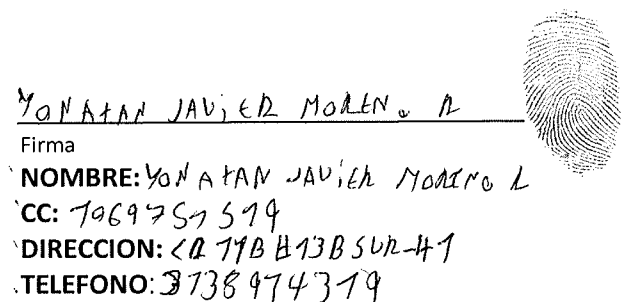 YONATAN JAViER MOREN. R
Firma
NOMBRE: YONATAN JAViER MORENO R
CC: 1069751519
DIRECCION: CR 11B #13B SUR-41
TELEFONO: 3138974319